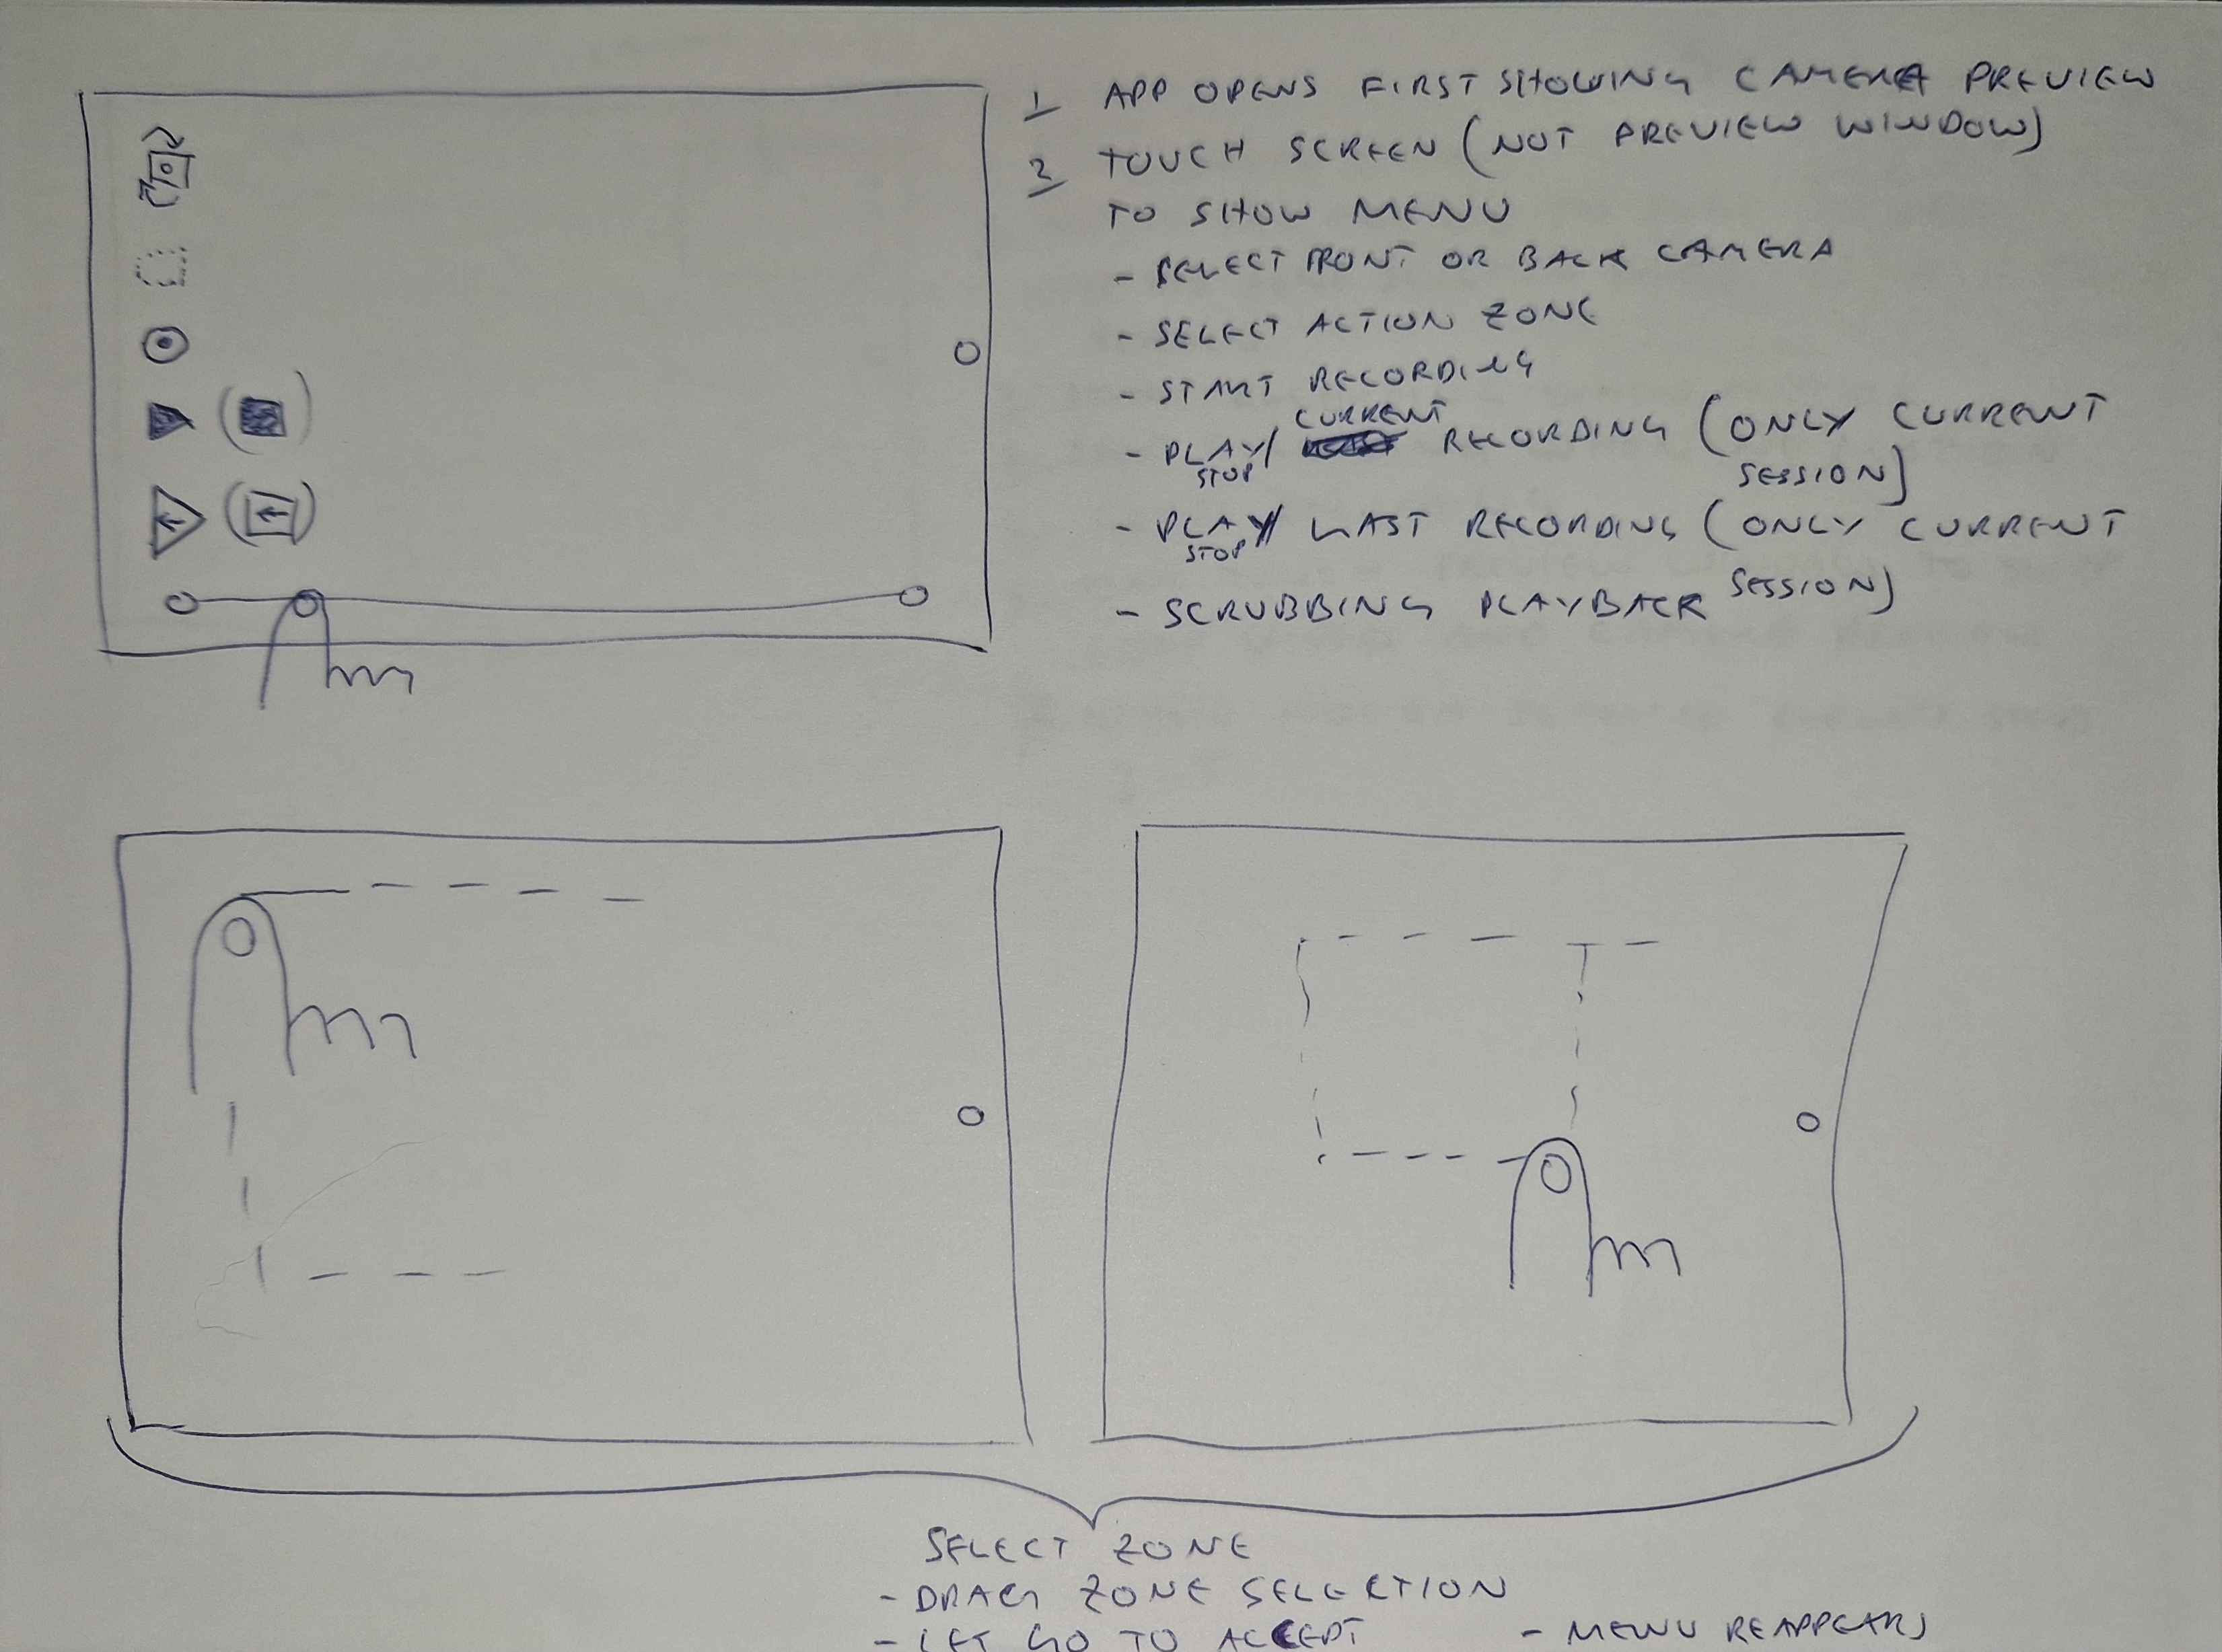 1 APP OPENS FIRST SHOWING CAMERA PREVIEW
2 TOUCH SCREEN (NOT PREVIEW WINDOW)
TO SHOW MENU
- SELECT FRONT OR BACK CAMERA
- SELECT ACTION ZONE
- START RECORDING
- PLAY/STOP CURRENT RECORDING (ONLY CURRENT
SESSION)
- PLAY/STOP LAST RECORDING (ONLY CURRENT
SESSION)
- SCRUBBING PLAYBACK
SELECT ZONE
- DRAG ZONE SELECTION
- LET GO TO ACCEPT - MENU REAPPEARS